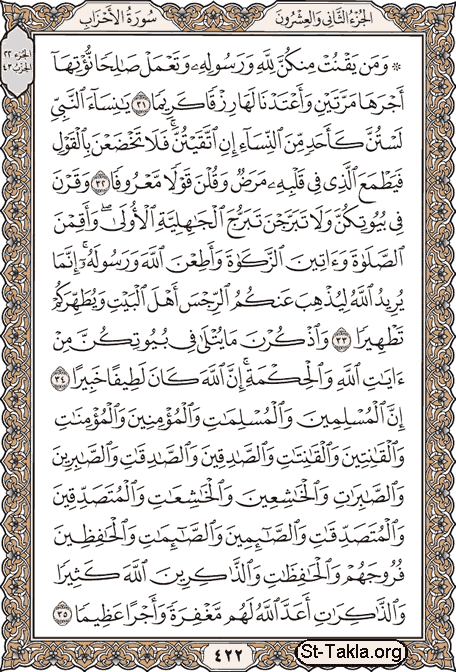 الجزء الثاني والعشرون
سورة الأحزاب
الجزء ٢٢
الحزب ٤٣
۞ وَمَن يَقْنُتْ مِنكُنَّ لِلَّهِ وَرَسُولِهِۦ وَتَعْمَلْ صَٰلِحًا نُّؤْتِهَآ
أَجْرَهَا مَرَّتَيْنِ وَأَعْتَدْنَا لَهَا رِزْقًا كَرِيمًا ٣١ يَٰنِسَآءَ ٱلنَّبِيِّ
لَسْتُنَّ كَأَحَدٍ مِّنَ ٱلنِّسَآءِ إِنِ ٱتَّقَيْتُنَّ ۚ فَلَا تَخْضَعْنَ بِٱلْقَوْلِ
فَيَطْمَعَ ٱلَّذِى فِى قَلْبِهِۦ مَرَضٌ وَقُلْنَ قَوْلًا مَّعْرُوفًا ٣٢ وَقَرْنَ
فِى بُيُوتِكُنَّ وَلَا تَبَرَّجْنَ تَبَرُّجَ ٱلْجَٰهِلِيَّةِ ٱلْأُولَىٰ ۖ وَأَقِمْنَ
ٱلصَّلَوٰةَ وَءَاتِينَ ٱلزَّكَوٰةَ وَأَطِعْنَ ٱللَّهَ وَرَسُولَهُۥٓ ۚ إِنَّمَا
يُرِيدُ ٱللَّهُ لِيُذْهِبَ عَنكُمُ ٱلرِّجْسَ أَهْلَ ٱلْبَيْتِ وَيُطَهِّرَكُمْ
تَطْهِيرًا ٣٣ وَٱذْكُرْنَ مَا يُتْلَىٰ فِى بُيُوتِكُنَّ مِنْ
ءَايَٰتِ ٱللَّهِ وَٱلْحِكْمَةِ ۚ إِنَّ ٱللَّهَ كَانَ لَطِيفًا خَبِيرًا ٣٤
إِنَّ ٱلْمُسْلِمِينَ وَٱلْمُسْلِمَٰتِ وَٱلْمُؤْمِنِينَ وَٱلْمُؤْمِنَٰتِ
وَٱلْقَٰنِتِينَ وَٱلْقَٰنِتَٰتِ وَٱلصَّٰدِقِينَ وَٱلصَّٰدِقَٰتِ وَٱلصَّٰبِرِينَ
وَٱلصَّٰبِرَٰتِ وَٱلْخَٰشِعِينَ وَٱلْخَٰشِعَٰتِ وَٱلْمُتَصَدِّقِينَ
وَٱلْمُتَصَدِّقَٰتِ وَٱلصَّٰٓئِمِينَ وَٱلصَّٰٓئِمَٰتِ وَٱلْحَٰفِظِينَ
فُرُوجَهُمْ وَٱلْحَٰفِظَٰتِ وَٱلذَّٰكِرِينَ ٱللَّهَ كَثِيرًا
وَٱلذَّٰكِرَٰتِ أَعَدَّ ٱللَّهُ لَهُم مَّغْفِرَةً وَأَجْرًا عَظِيمًا ٣٥
٤٢٢
St-Takla.org